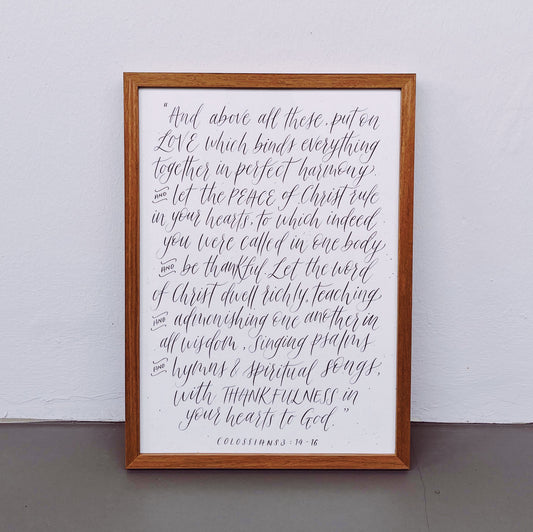 "And above all these, put on
LOVE which binds everything
together in perfect harmony.
AND let the PEACE of Christ rule
in your hearts, to which indeed
you were called in one body
AND be thankful. Let the word
of Christ dwell richly, teaching
AND admonishing one another in
all wisdom, singing psalms
AND hymns & spiritual songs,
with THANKFULNESS in
your hearts to God."
COLOSSIANS 3:14-16